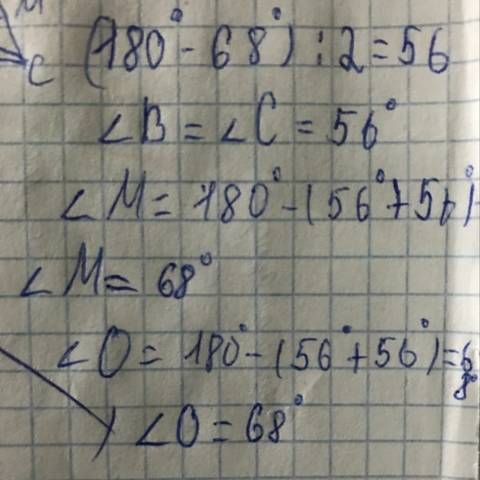 M
C (180° - 68°) : 2 = 56
∠B = ∠C = 56°
∠M = 180° - (56° + 56°)
∠M = 68°
∠O = 180° - (56° + 56°) = 68°
∠O = 68°